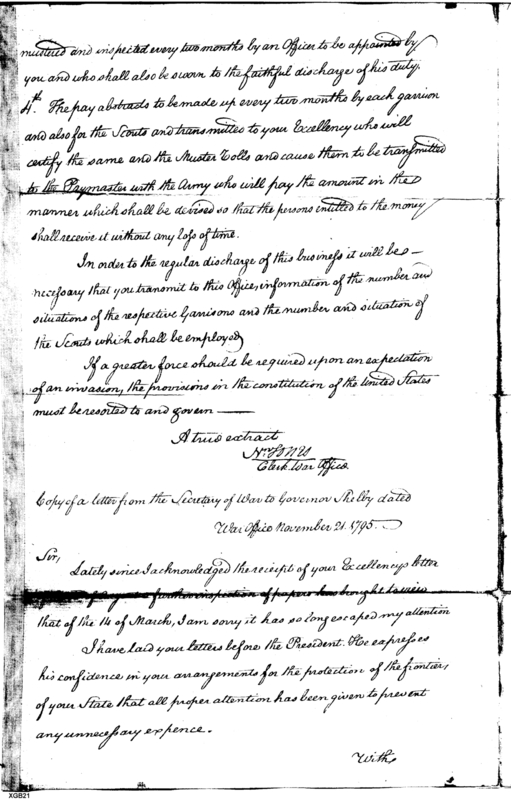 mustered and inspected every two months by an Officer to be appointed by
you and who shall also be sworn to the faithful discharge of his duty.
4th. The pay abstracts to be made up every two months by each garrison
and also for the Scouts and transmitted to your Excellency who will
certify the same and the Muster Rolls and cause them to be transmitted
to the Paymaster with the Army who will pay the amount in the
manner which shall be devised so that the persons intitled to the money
shall receive it without any loss of time.
In order to the regular discharge of this business it will be
necessary that you transmit to this Office, information of the number and
situations of the respective Garrisons and the number and situation of
the Scouts which shall be employed
If a greater force should be required upon an expectation
of an invasion, the provisions in the constitution of the United States
must be resorted to and govern —
A true extract
Clerk War Office.
Copy of a letter from the Secretary of War to Governor Shelby dated
War Office November 21. 1795.
Sir,
Lately since I acknowledged the receipt of your Excellencys letter
of a further inspection of papers has brought to view
that of the 14 of March, I am sorry it has so long escaped my attention
I have laid your letters before the President. He expresses
his confidence in your arrangements for the protection of the frontiers
of your State that all proper attention has been given to prevent
any unnecessary expence.
With
XGB21